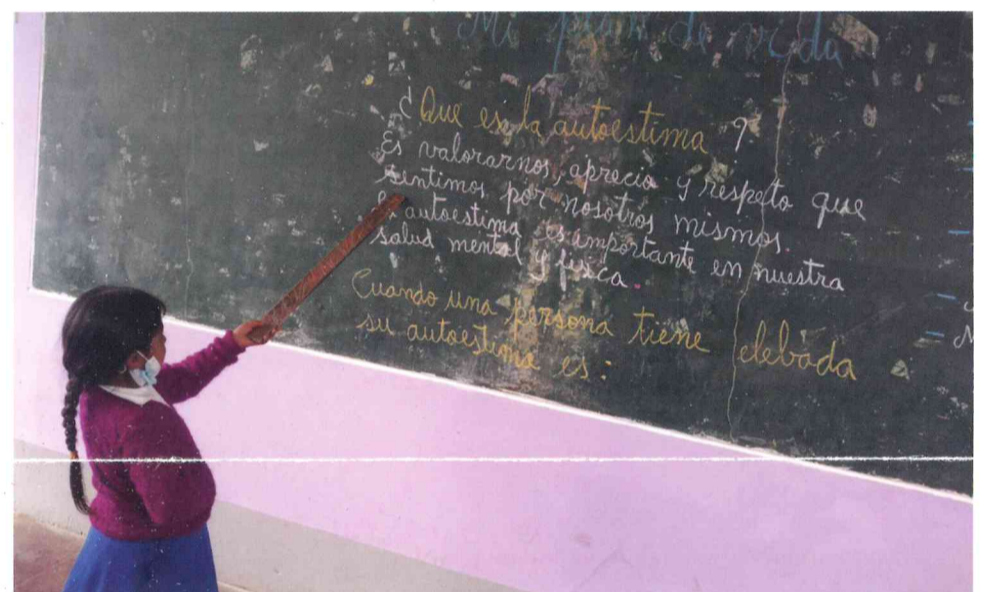 Mi plan de vida
¿Que es la autoestima?
Es valorarnos, aprecio y respeto que
sintimos por nosotros mismos.
autoestima es importante en nuestra
salud mental y fisca.
Cuando una persona tiene elebada
su autoestima es: